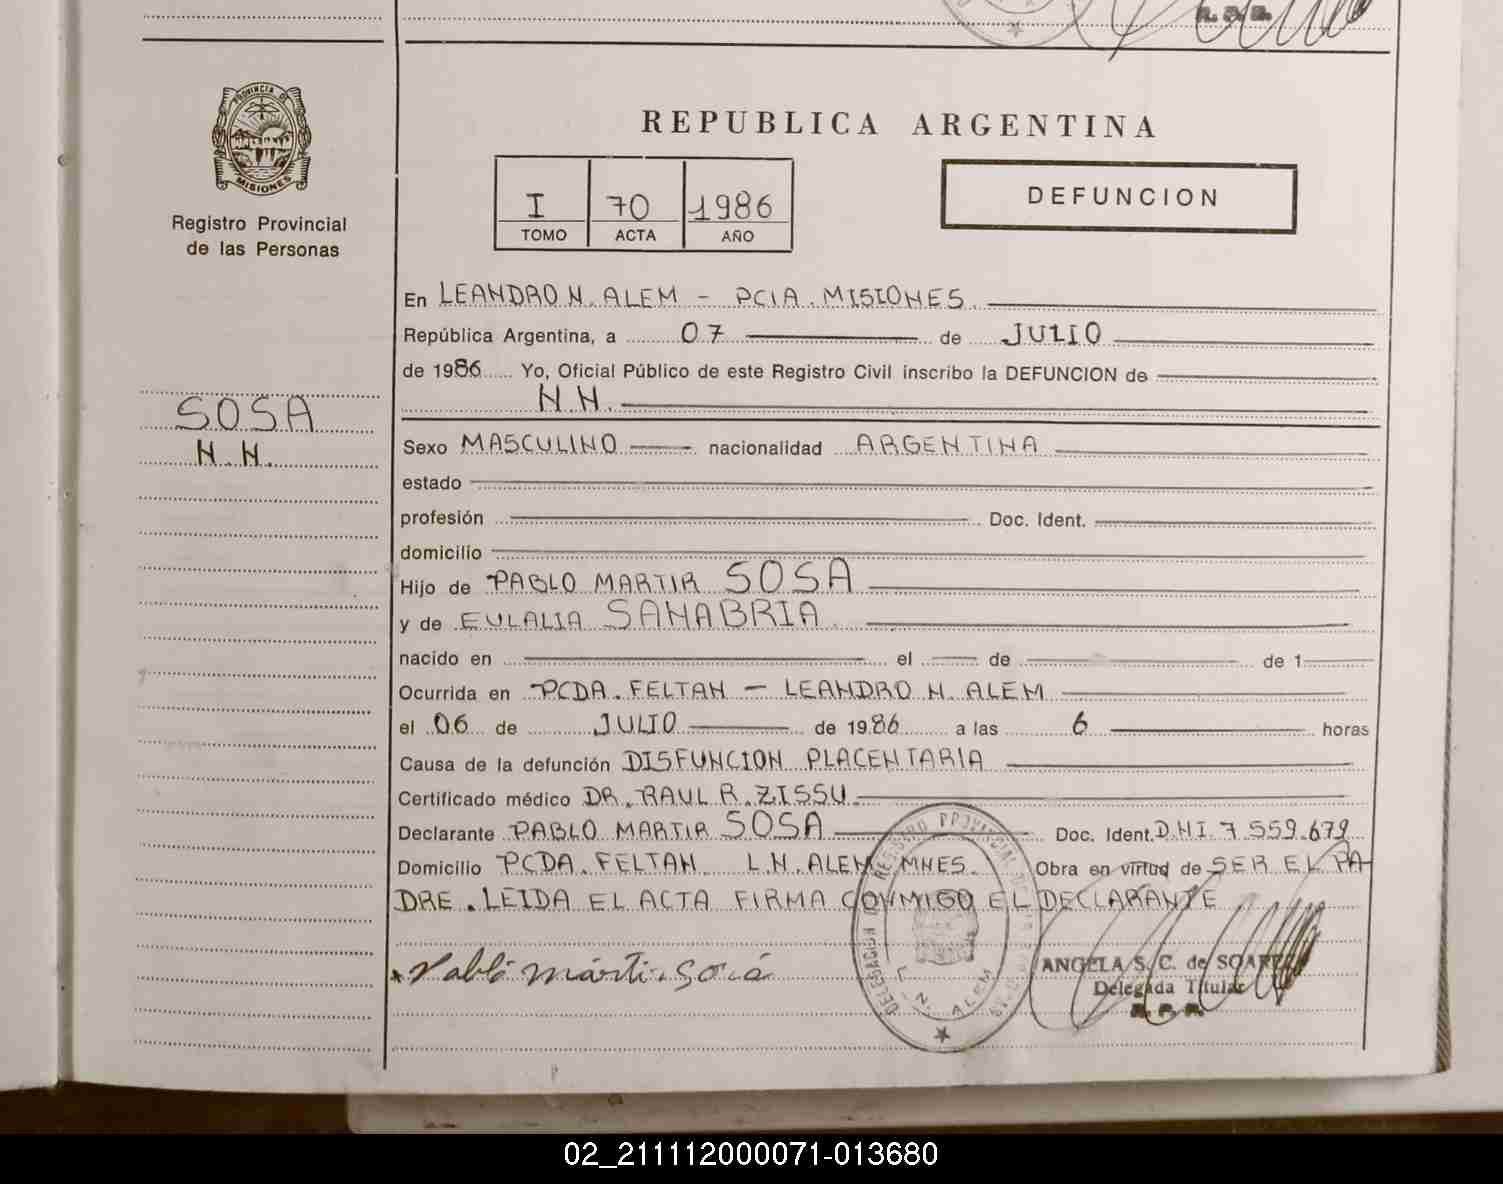 R. P. P.
PROVINCIA DE
MISIONES
Registro Provincial
de las Personas
SOSA
N.N.
REPUBLICA ARGENTINA
I 70 1986
TOMO ACTA AÑO
DEFUNCION
En LEANDRO N. ALEM - PCIA. MISIONES.
República Argentina, a 07 de JULIO
de 1986 Yo, Oficial Público de este Registro Civil inscribo la DEFUNCION de
N.N.
Sexo MASCULINO nacionalidad ARGENTINA
estado
profesión Doc. Ident.
domicilio
Hijo de PABLO MARTIR SOSA
y de EULALIA SANABRIA
nacido en el de de 1
Ocurrida en PCDA. FELTAN - LEANDRO N. ALEM
el 06 de JULIO de 1986 a las 6 horas
Causa de la defunción DISFUNCION PLACENTARIA
Certificado médico DR. RAUL R. ZISSU.
Declarante PABLO MARTIR SOSA Doc. Ident. D.N.I. 7.559.679
Domicilio PCDA. FELTAN L.N. ALEM MNES. Obra en virtud de SER EL PA
DRE. LEIDA EL ACTA FIRMA CONMIGO EL DECLARANTE
Pablo martir sosa
DELEGACION REGISTRO PROVINCIAL DE LAS PERSONAS
L. N. ALEM
ANGELA S. C. de SOAREZ
Delegada Titular
R. P. P.
02_211112000071-013680